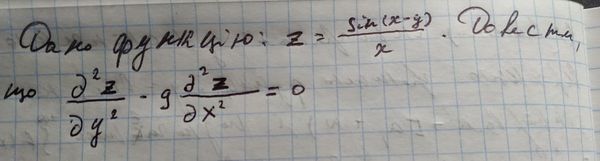 Дано функцію: z = sin(x-y)/x. Довести,
що ∂²z/∂y² - 9 ∂²z/∂x² = 0